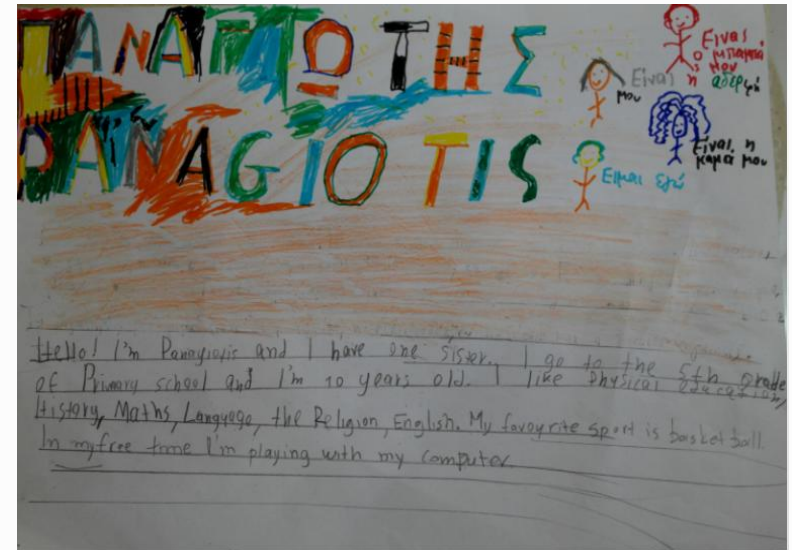 ΠΑΝΑΓΙΩΤΗΣ
PANAGIOTIS
Είναι
ο μπαμπά
ς μου
Είναι η αδερφή
μου
Είναι η
μαμά μου
Είμαι εγώ
Hello! I'm Panagiotis and I have one sister. I go to the 5th grade
of Primary school and I'm 10 years old. I like Physical education,
History, Maths, Language, the Religion, English. My favourite sport is basketball.
In my free time I'm playing with my computer